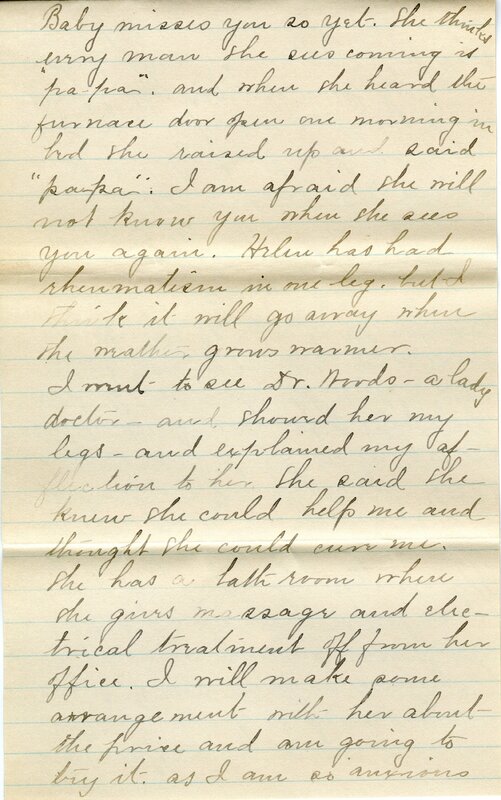 Baby misses you so yet. She thinks
every man she sees coming is
"pa-pa". and when she heard the
furnace door open one morning in
bed she raised up and said
"papa". I am afraid she will
not know you when she sees
you again. Helen has had
rheumatism in one leg. but I
think it will go away when
the weather grows warmer.
I went to see Dr. Woods - a lady
doctor - and showed her my
legs - and explained my af-
fliction to her. She said she
knew she could help me and
thought she could cure me.
She has a bath room where
she gives massage and elec-
trical treatment off from her
office. I will make some
arrangement with her about
the price and am going to
try it. as I am so anxious